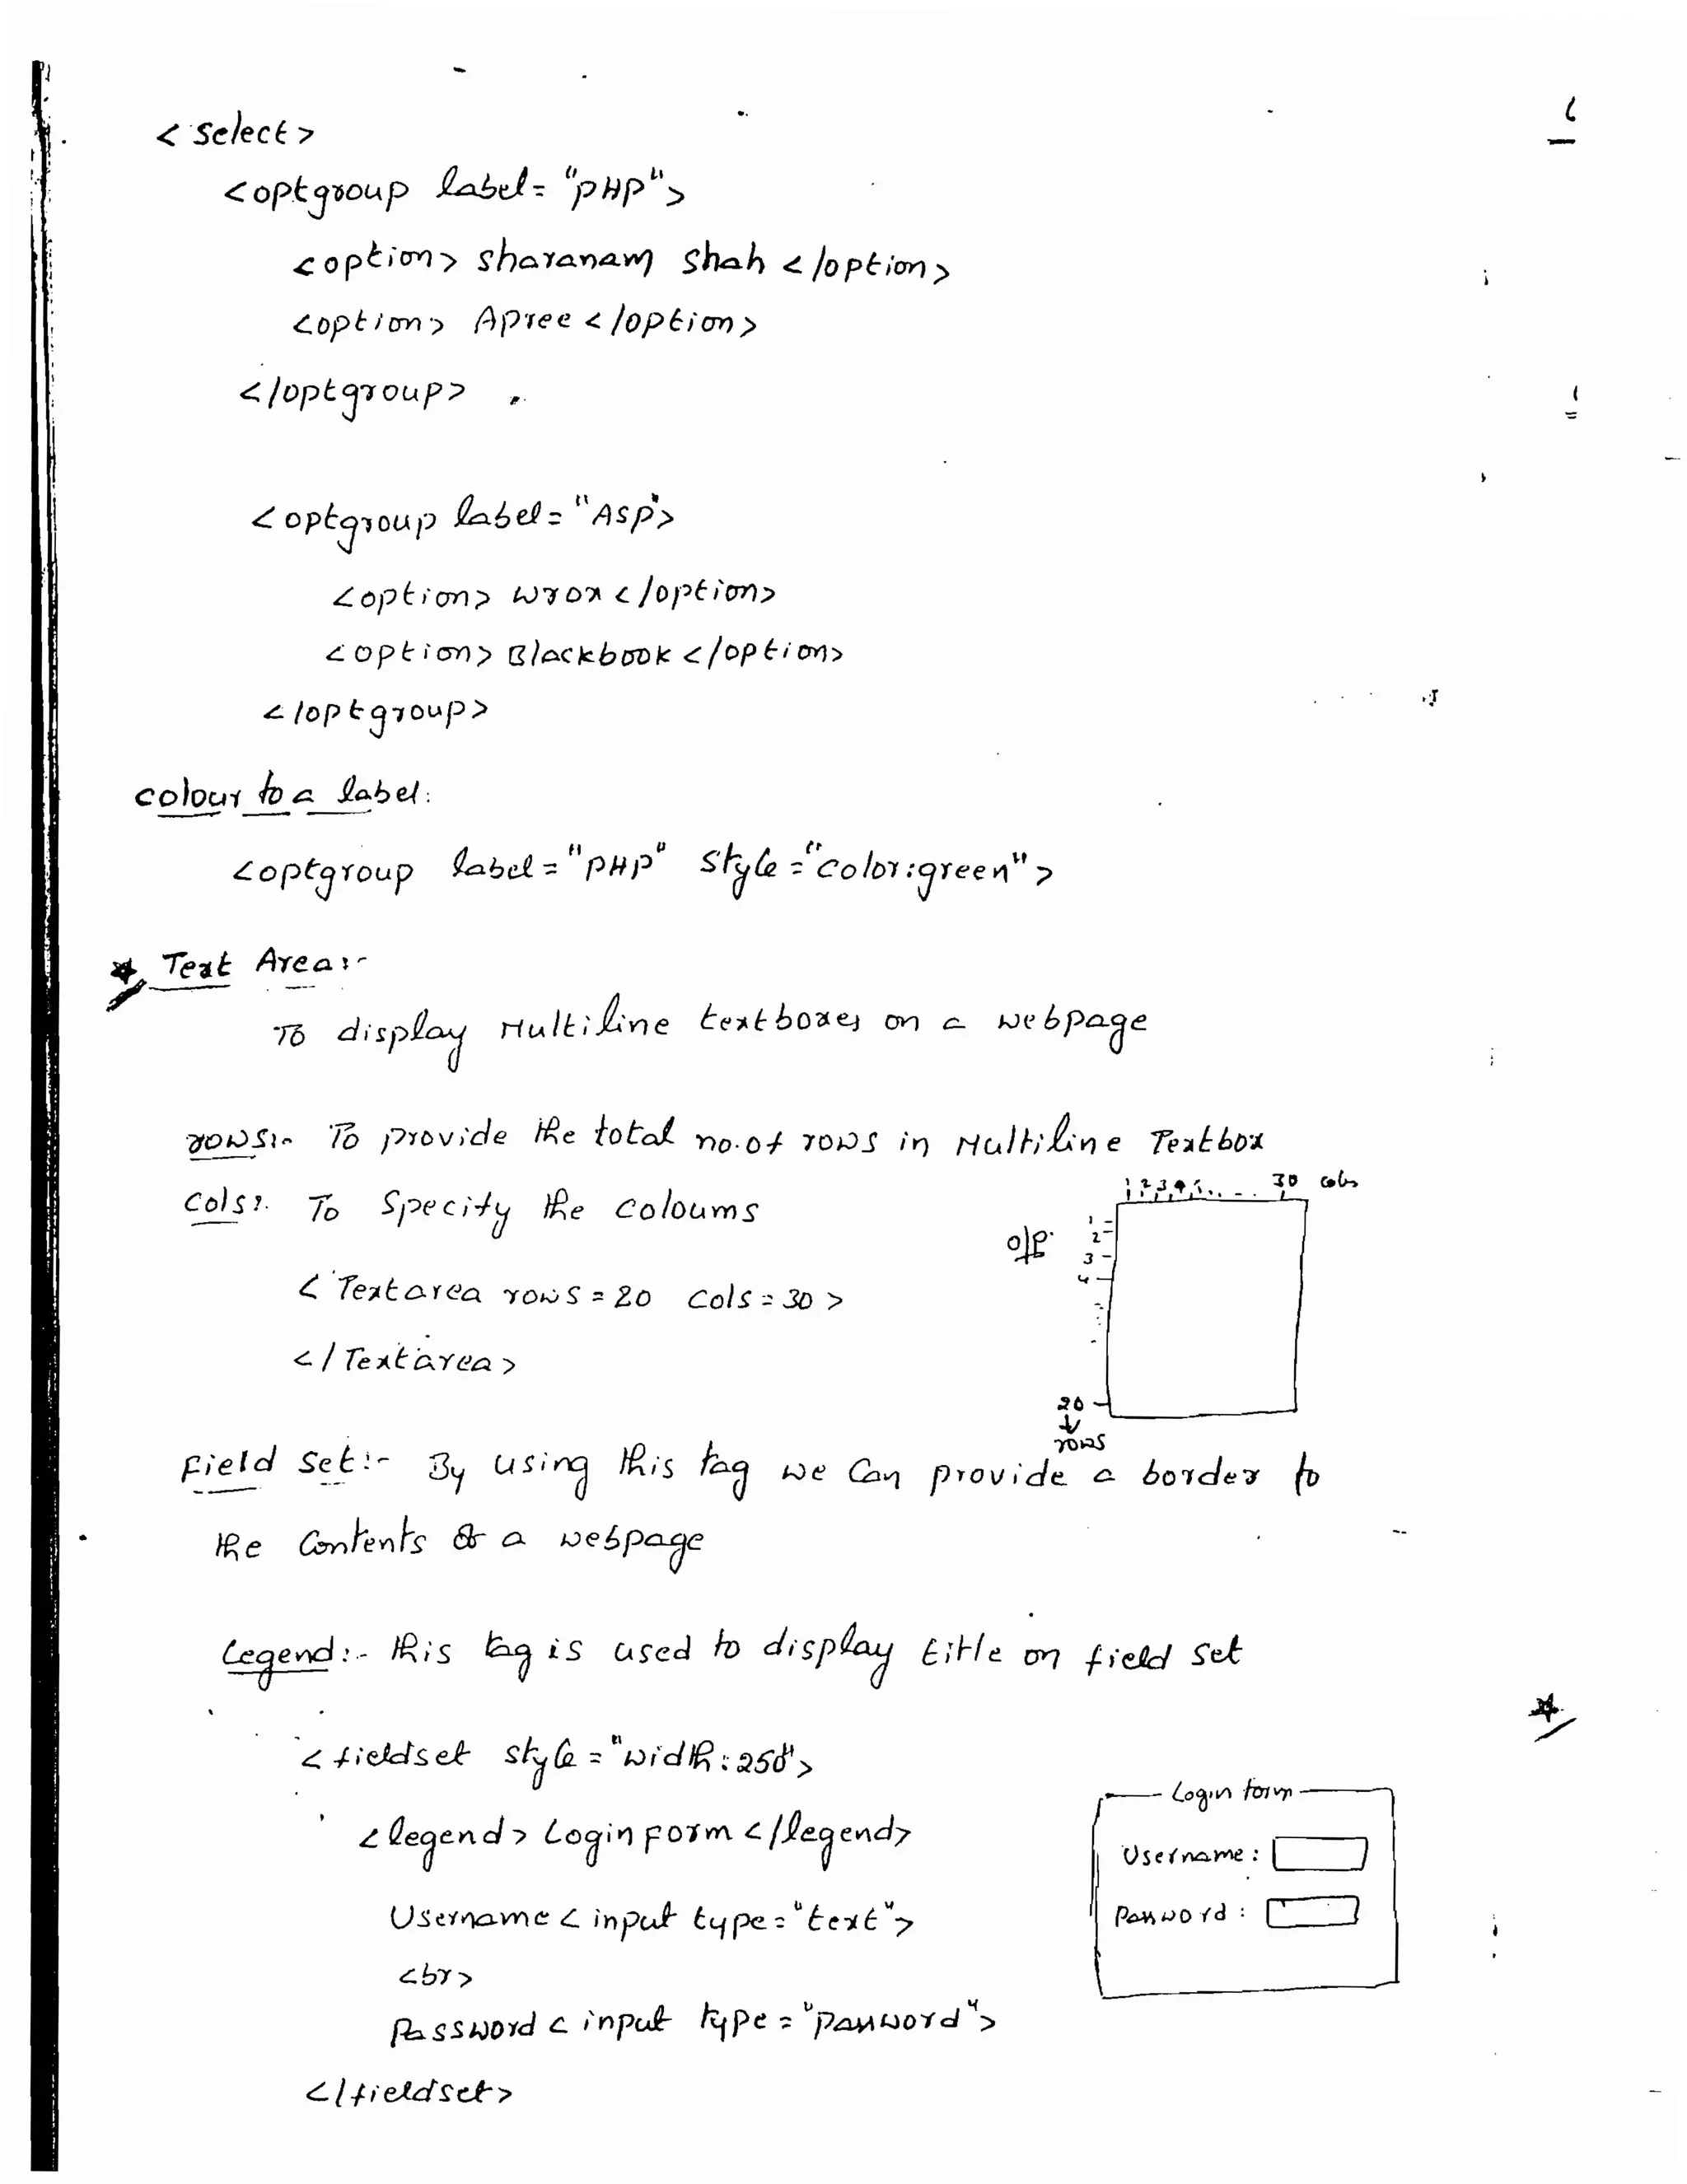 6
<select>
<optgroup label="PHP">
<option> sharanam shah </option>
<option> Apree </option>
</optgroup>
<optgroup label="Asp">
<option> wrox </option>
<option> Blackbook </option>
</optgroup>
colour to a label:
<optgroup label="PHP" style="color:green">
* Text Area:-
To display Multiline textboxes on a webpage
rows:- To provide the total no.of rows in Multiline Textbox
cols:- To Specify the coloums
1 2 3 4 5 . . - . 30 cols
o/p:
1
2
3
4
<Textarea rows=20 cols=30>
</Textarea>
20
rows
Field Set:- By using this tag we can provide a border to
the contents of a webpage
Legend:- this tag is used to display title on field set
<fieldset style="width:250">
<legend> Login Form </legend>
Username <input type="text">
<br>
Password <input type="password">
</fieldset>
Login form
Username:
Password: